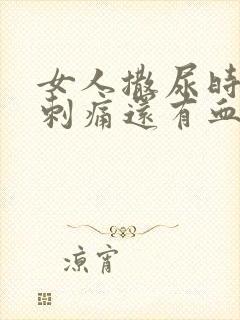 女人撒尿時
刺痛還有血
涼宵